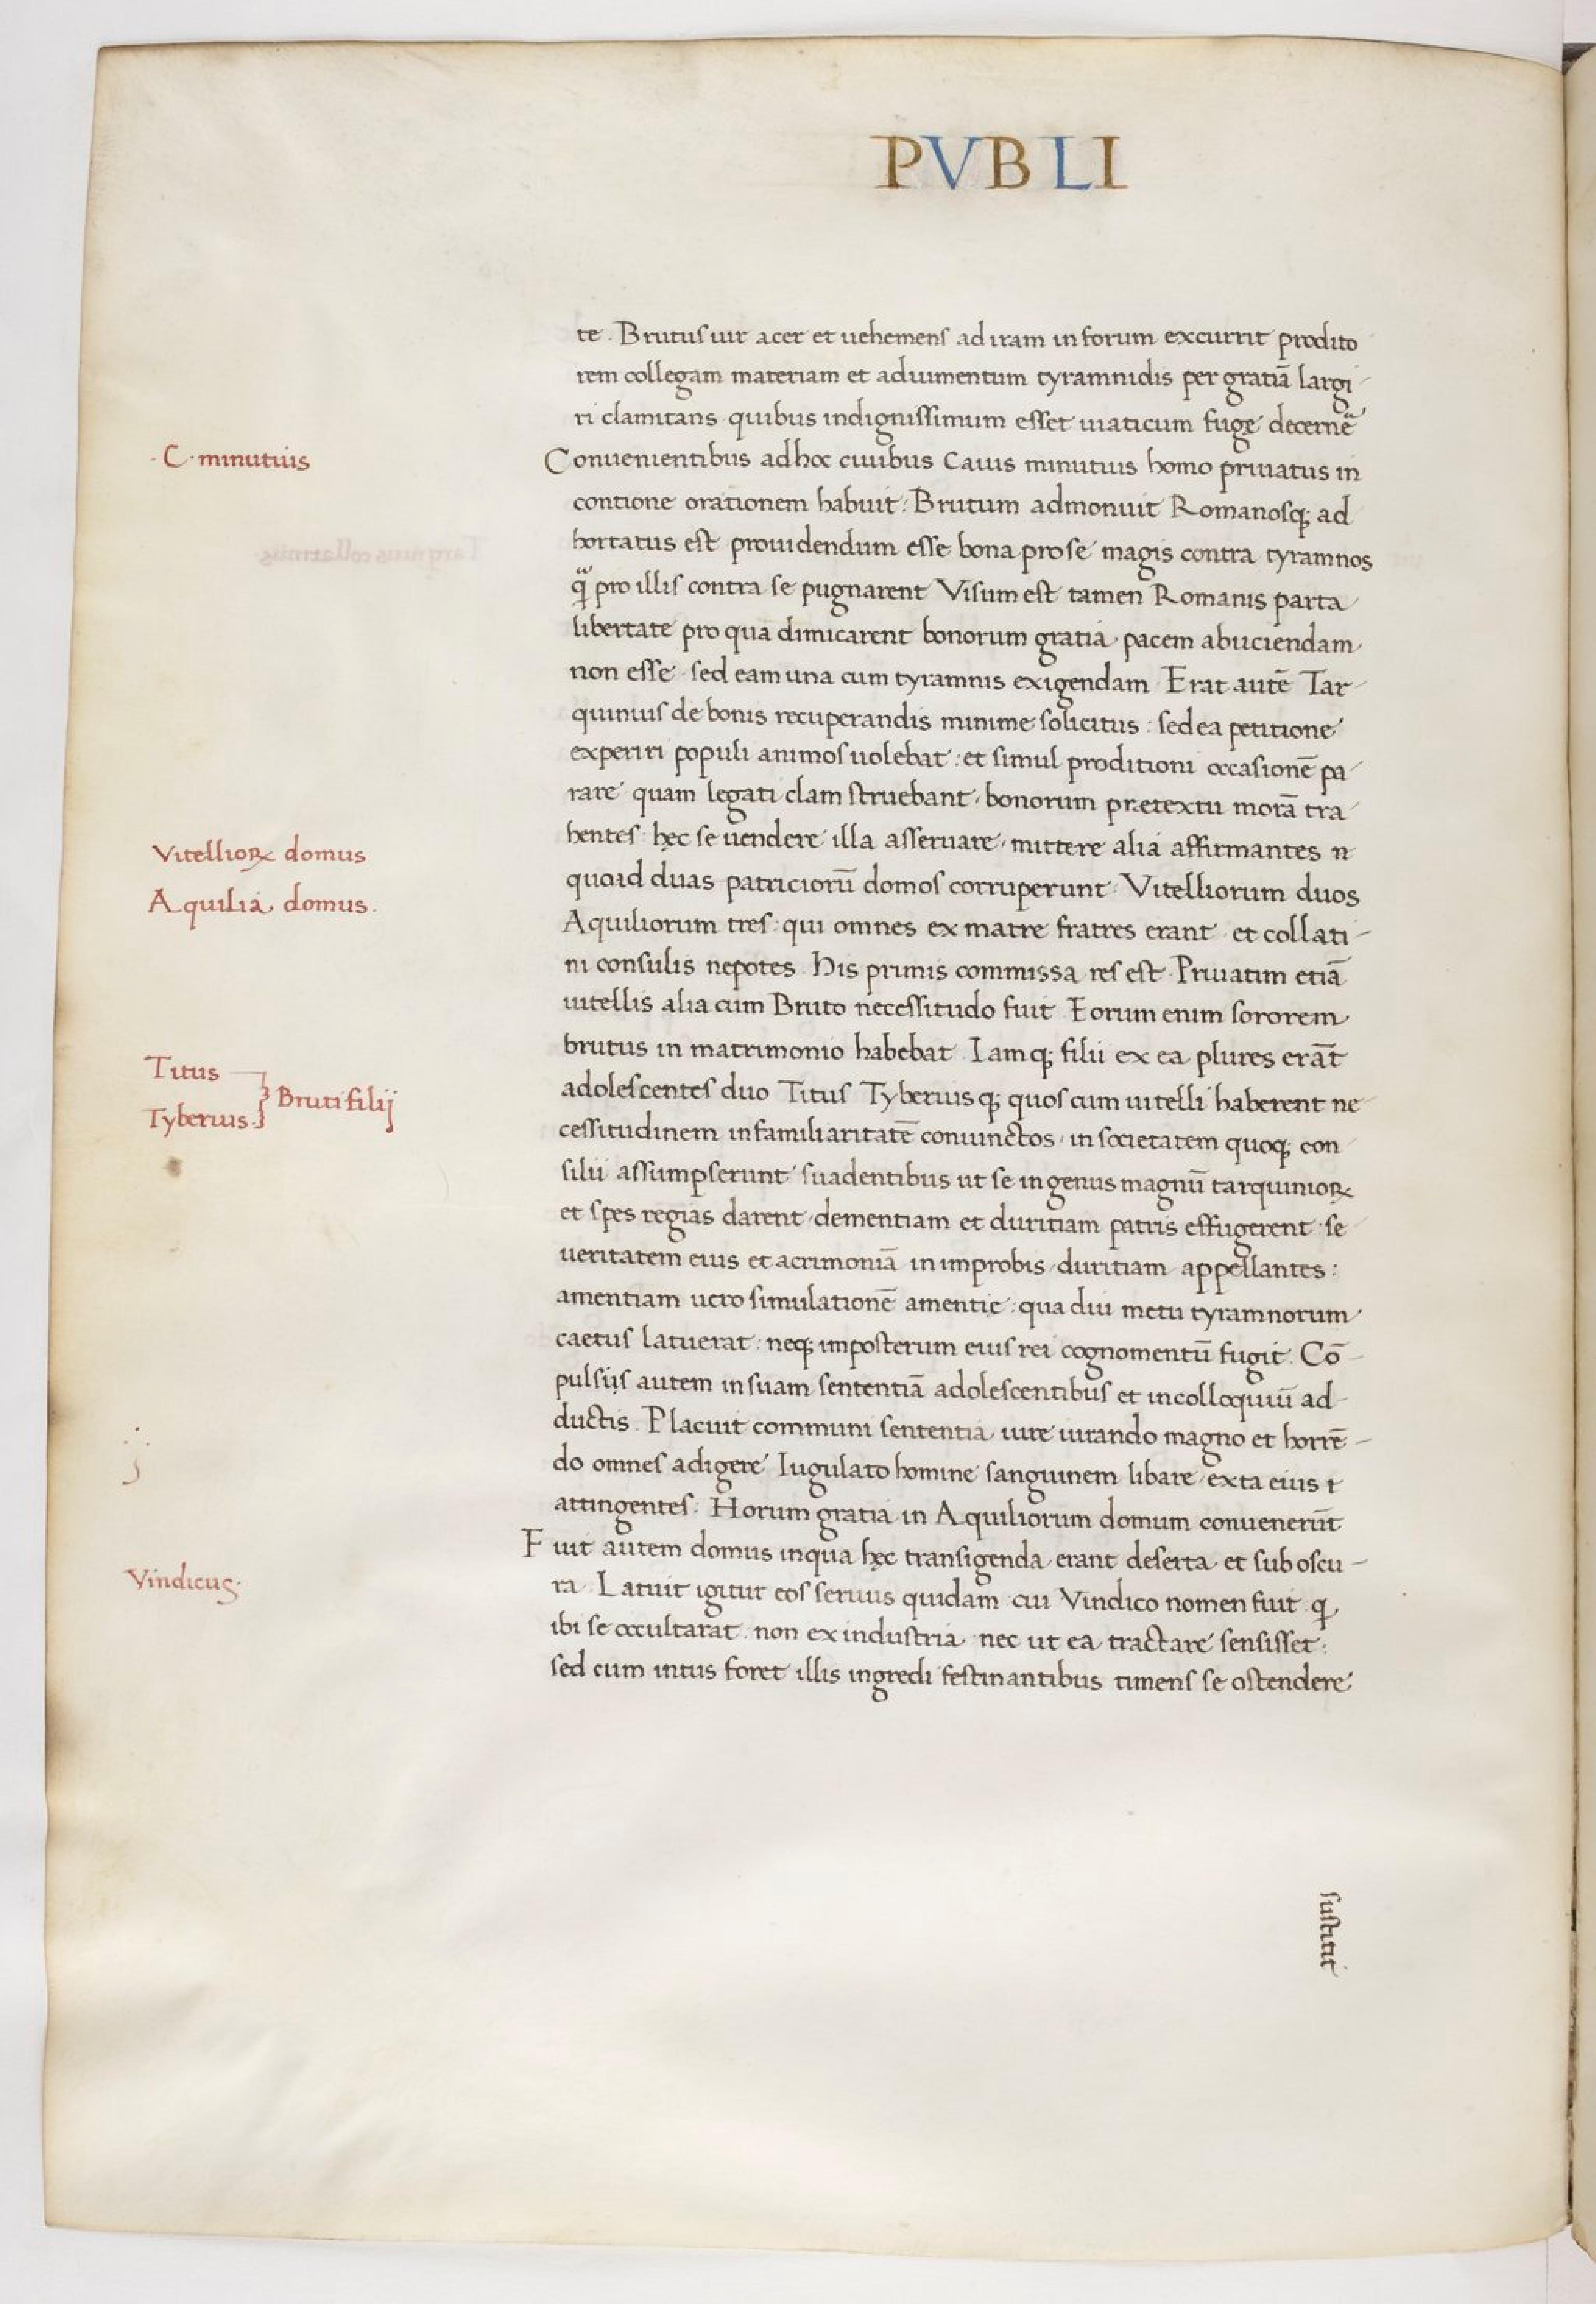 PVBLI
te. Brutus uir acer et uehemens ad iram in forum excurrit prodito
rem collegam materiam et adiumentum tyramnidis per gratiã largi
ri clamitans quibus indignissimum esset uiaticum fugę decernẽ
C. minutius
Conuenientibus ad hoc ciuibus Caius minutius homo priuatus in
contione orationem habuit: Brutum admonuit Romanosq; ad
hortatus est prouidendum esse bona pro se magis contra tyramnos
q̃ pro illis contra se pugnarent Visum est tamen Romanis parta
libertate pro qua dimicarent bonorum gratia pacem abiiciendam
non esse sed eam una cum tyramnis exigendam Erat autẽ Tar
quinius de bonis recuperandis minime solicitus: sed ea petitione
experiri populi animos uolebat: et simul proditioni occasionẽ pa
rare quam legati clam struebant, bonorum prætextu morã tra
hentes: hęc se uendere illa asseruare, mittere alia affirmantes n
Vitelliorꝝ domus
quoad duas patriciorũ domos corruperunt. Vitelliorum duos
Aquilia domus.
Aquiliorum tres: qui omnes ex matre fratres erant et collati
ni consulis nepotes. His primis commissa res est. Priuatim etiã
uitellis alia cum Bruto necessitudo fuit Eorum enim sororem
brutus in matrimonio habebat. Iamq; filii ex ea plures erãt
Titus
Tyberius } Bruti filij
adolescentes duo Titus Tyberiusq; quos cum uitelli haberent ne
cessitudinem in familiaritatẽ coniunctos, in societatem quoq; con
silii assumpserunt suadentibus ut se in genus magnũ tarquiniorꝝ
et spes regias darent, dementiam et duritiam patris effugerent se
ueritatem eius et acrimoniã in improbis, duritiam appellantes:
amentiam uero simulationẽ amentię: qua diu metu tyramnorum
caetus latuerat: neq; imposterum eius rei cognomentũ fugit. Cõ
pulsiis autem in suam sententiã adolescentibus et in colloquiũ ad
ductis. Placuit communi sententia iure iurando magno et horrẽ
do omnes adigere Iugulato homine sanguinem libare exta eius
attingentes: Horum gratia in Aquiliorum domum conuenerũt
Fuit autem domus in qua hęc transigenda erant deserta et sub oscu
Vindicus.
ra. Latuit igitur eos seruus quidam cui Vindico nomen fuit q
ibi se occultarat non ex industria nec ut ea tractare sensisset:
sed cum intus foret illis ingredi festinantibus timens se ostendere
sustitit